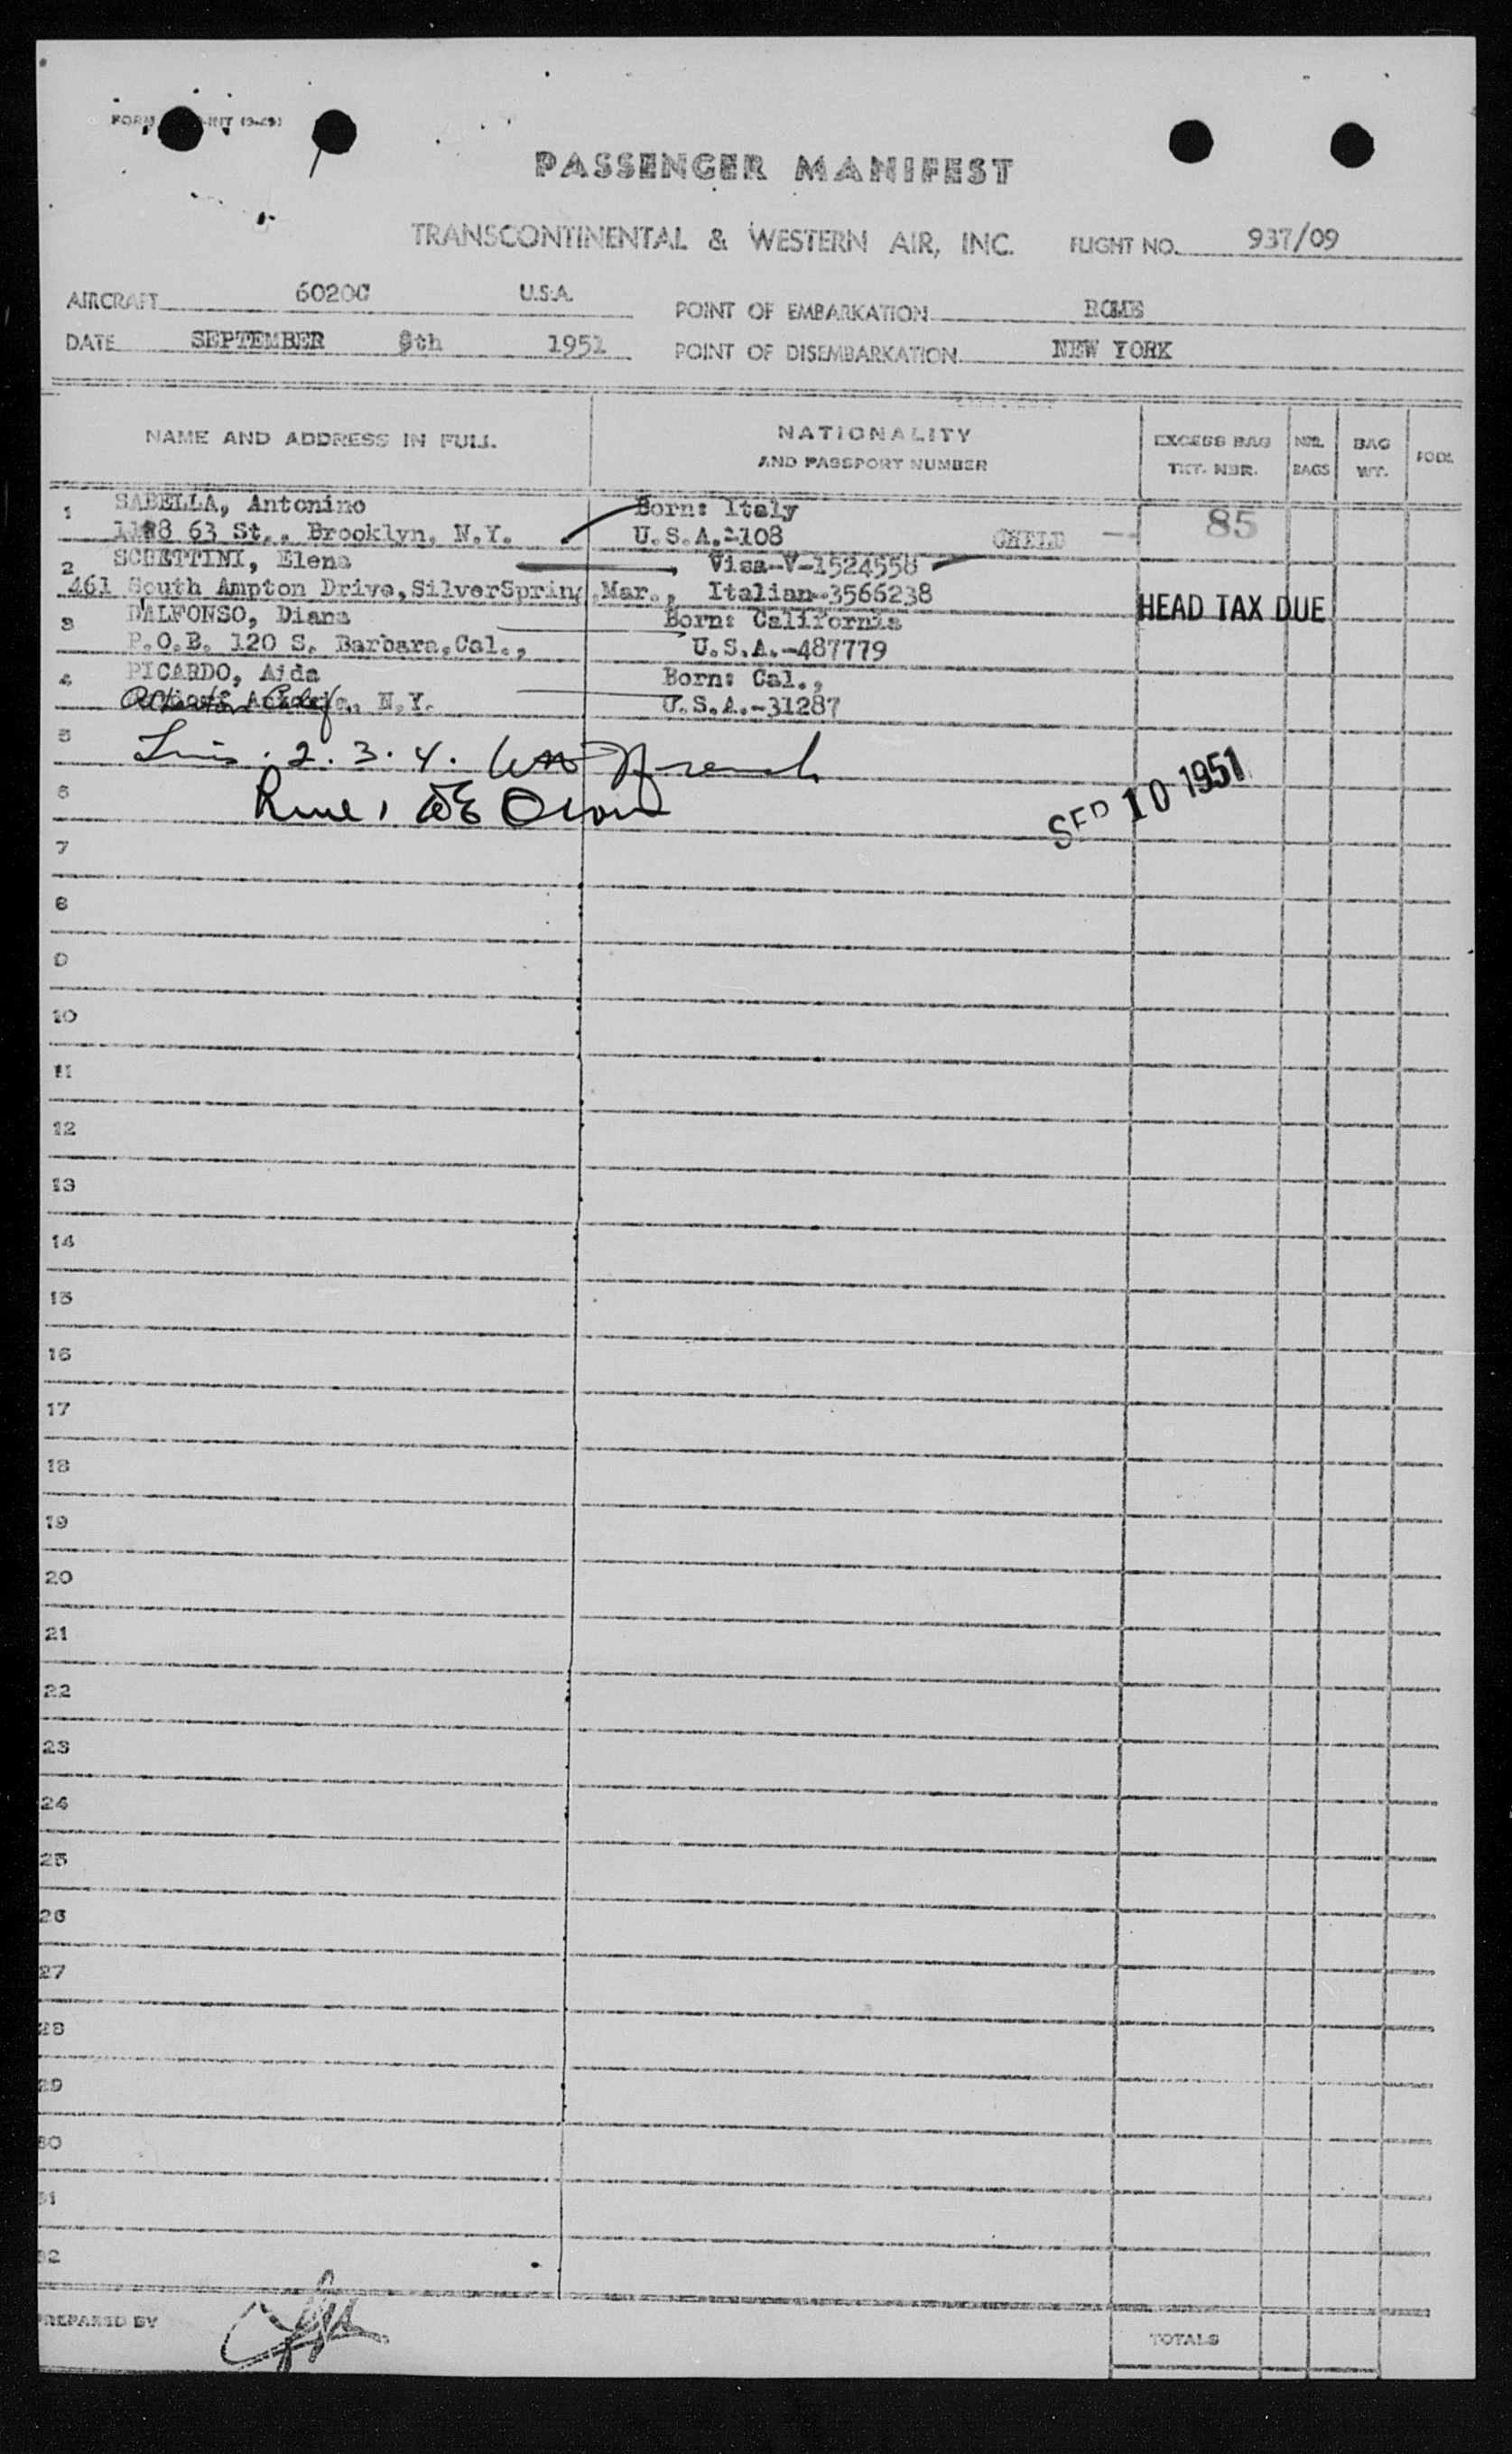 PASSENGER MANIFEST
TRANSCONTINENTAL & WESTERN AIR, INC. FLIGHT NO. 937/09
AIRCRAFT 6020C U.S.A. POINT OF EMBARKATION ROME
DATE SEPTEMBER 9th 1951 POINT OF DISEMBARKATION NEW YORK
NAME AND ADDRESS IN FULL NATIONALITY AND PASSPORT NUMBER EXCESS BAG TKT. NBR. NBR. BAGS BAG WT.
1 SABELLA, Antonino Born: Italy 85
63 St., Brooklyn, N.Y. U.S.A.-108 CHILD
2 SCHETTINI, Elena Visa-V-1524558
461 South Ampton Drive, SilverSpring, Mar., Italian-3566238 HEAD TAX DUE
3 DALFONSO, Diana Born: California
P.O.B. 120 S. Barbara, Cal., U.S.A.-487779
4 PICARDO, Aida Born: Cal.,
N.Y. U.S.A.-31287
5 2. 3. 4.
6
SEP 10 1951
7
8
9
10
11
12
13
14
15
16
17
18
19
20
21
22
23
24
25
26
27
28
29
30
31
32
PREPARED BY
TOTALS